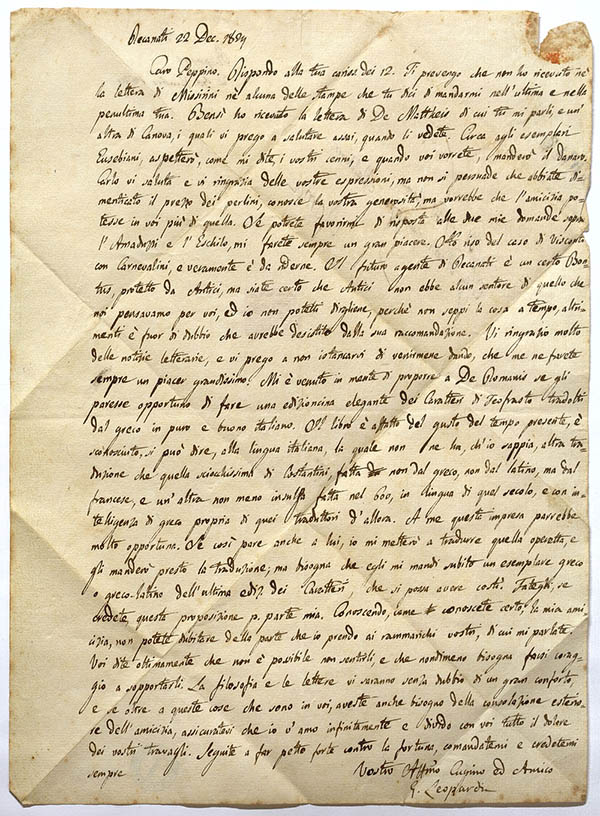 Recanati 22 Dec. 1824
Caro Peppino. Rispondo alla tua cariss. dei 12. Ti prevengo che non ho ricevuto nè
la lettera di Missirini nè alcuna delle stampe che tu dici di mandarmi nell'ultima e nella
penultima tua. Bensì ho ricevuto la lettera di De Mattheis di cui tu mi parli, e un'
altra di Canova, i quali vi prego a salutare assai, quando li vedete. Circa agli esemplari
Eusebiani, aspetterò, come mi dite, i vostri cenni, e quando voi vorrete, manderò il danaro.
Carlo vi saluta e vi ringrazia delle vostre espressioni, ma non si persuade che abbiate di-
menticato il prezzo dei perlini, conosce la vostra generosità, ma vorrebbe che l'amicizia po-
tesse in voi più di quella. Se potrete favorirmi di risposta alle due mie domande sopra
l'Amaduzzi e l'Eschilo, mi farete sempre un gran piacere. Ho riso del caso di Visconti
con Carnevalini, e veramente è da riderne. Il futuro agente di Recanati è un certo
protetto da Antici, ma siate certo che Antici non ebbe alcun sentore di quello che
noi pensavamo per voi, ed io non potetti dirglielo, perchè non seppi la cosa a tempo, altri-
menti è fuor di dubbio che avrebbe desistito dalla sua raccomandazione. Vi ringrazio molto
delle notizie letterarie, e vi prego a non istancarvi di venirmene dando, che me ne farete
sempre un piacer grandissimo. Mi è venuto in mente di proporre a De Romanis se gli
paresse opportuno di fare una edizioncina elegante dei Caratteri di Teofrasto tradotti
dal greco in puro e buono italiano. Il libro è affatto del gusto del tempo presente, è
sconosciuto, si può dire, alla lingua italiana, la quale non ne ha, ch'io sappia, altra tra-
duzione che quella sciocchissima di Costantini, fatta non dal greco, non dal latino, ma dal
francese, e un'altra non meno insulsa fatta nel 600, in lingua di quel secolo, e con in-
telligenza di greco propria di quei traduttori d'allora. A me questa impresa parrebbe
molto opportuna. Se così pare anche a lui, io mi metterò a tradurre quella operetta, e
gli manderò presto la traduzione; ma bisogna che egli mi mandi subito un esemplare greco
o greco-latino dell'ultima ediz. dei Caratteri, che si possa avere costì. Fategli, se
credete, questa proposizione p. parte mia. Conoscendo, come conoscete certo, la mia ami-
cizia, non potete dubitare della parte che io prendo ai rammarichi vostri, di cui mi parlate.
Voi dite ottimamente che non è possibile non sentirli, e che nondimeno bisogna farsi corag-
gio a sopportarli. La filosofia e le lettere vi saranno senza dubbio di un gran conforto,
e se oltre a queste cose che sono in voi, aveste anche bisogno della consolazione esterio-
re dell'amicizia, assicuratevi che io v'amo infinitamente e divido con voi tutto il dolore
dei vostri travagli. Seguite a far petto forte contro la fortuna, comandatemi e credetemi
sempre Vostro Affmo Cugino ed Amico
G. Leopardi